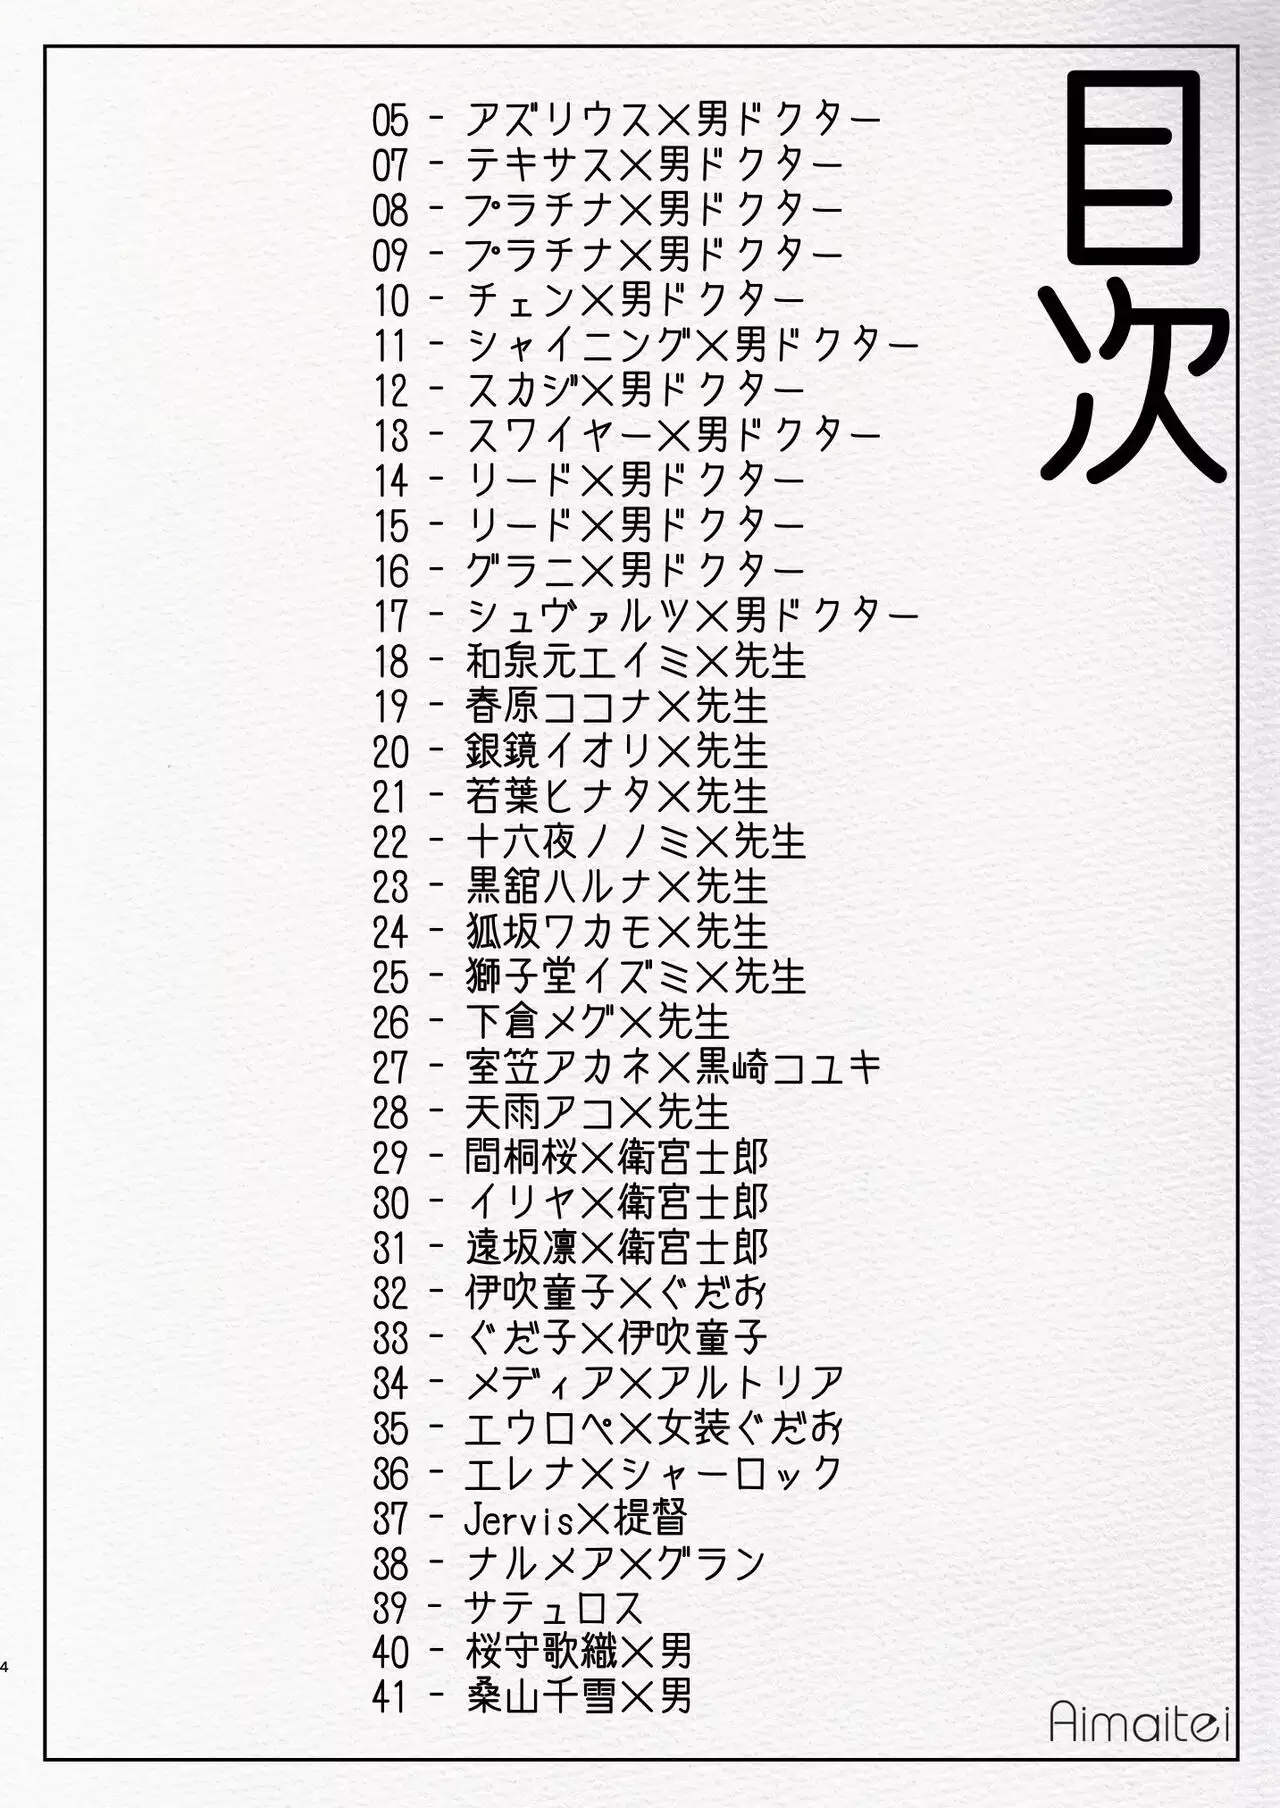 目次
05 - アズリウス×男ドクター
07 - テキサス×男ドクター
08 - プラチナ×男ドクター
09 - プラチナ×男ドクター
10 - チェン×男ドクター
11 - シャイニング×男ドクター
12 - スカジ×男ドクター
13 - スワイヤー×男ドクター
14 - リード×男ドクター
15 - リード×男ドクター
16 - グラニ×男ドクター
17 - シュヴァルツ×男ドクター
18 - 和泉元エイミ×先生
19 - 春原ココナ×先生
20 - 銀鏡イオリ×先生
21 - 若葉ヒナタ×先生
22 - 十六夜ノノミ×先生
23 - 黒舘ハルナ×先生
24 - 狐坂ワカモ×先生
25 - 獅子堂イズミ×先生
26 - 下倉メグ×先生
27 - 室笠アカネ×黒崎コユキ
28 - 天雨アコ×先生
29 - 間桐桜×衛宮士郎
30 - イリヤ×衛宮士郎
31 - 遠坂凛×衛宮士郎
32 - 伊吹童子×ぐだお
33 - ぐだ子×伊吹童子
34 - メディア×アルトリア
35 - エウロペ×女装ぐだお
36 - エレナ×シャーロック
37 - Jervis×提督
38 - ナルメア×グラン
39 - サテュロス
40 - 桜守歌織×男
41 - 桑山千雪×男
4
Aimaitei